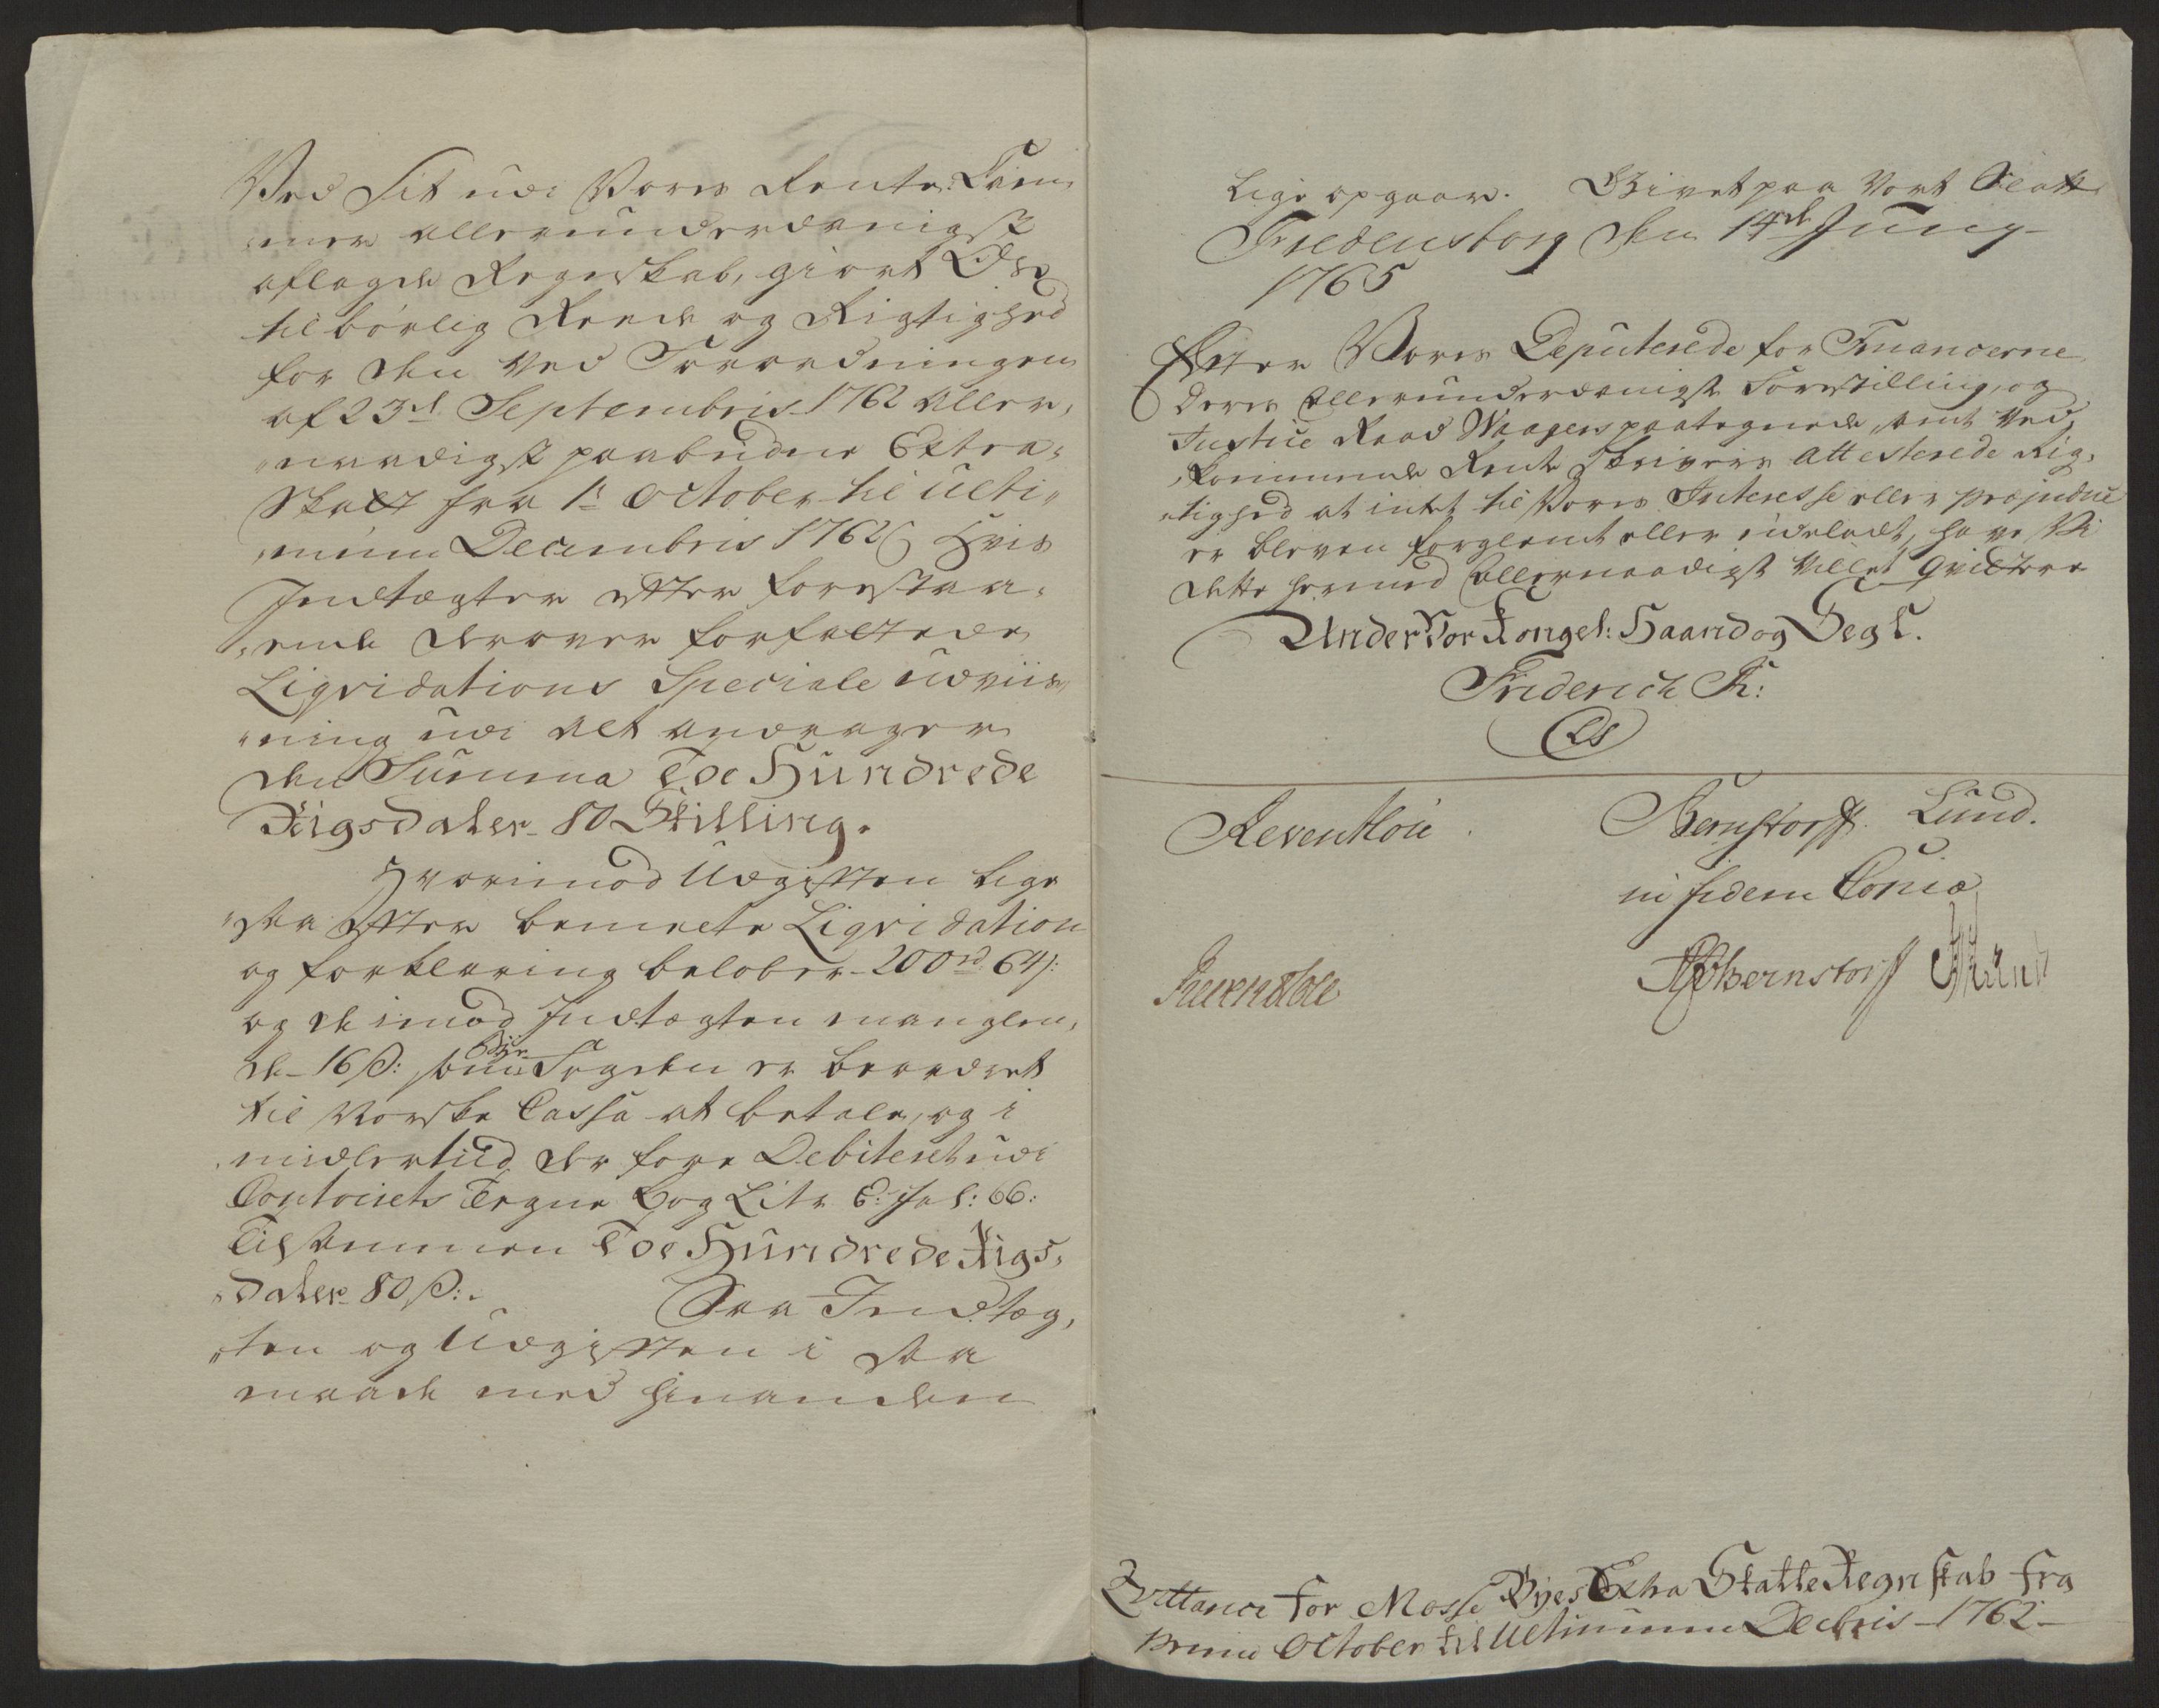 Ved Sit udi Vores Rente-Kam
mer allerunderdanigst
aflagde Regnskab, giort Os
tilbørlig Reede og Rigtighed
for den ved Forordningen
af 23d Septembris 1762 aller,
naadigst paabudne Extra,
Skatt fra 1te October til ulti,,
,,mum Decembris 1762 Hvis
Indtægter efter forestaa,
,,ende derover forfattede
Liqvidations Speciale udviis,,
,,ning udi alt andrager
den Summa Toe Hundrede
Rigsdaler 80 Skilling.
Hvorimod Udgiften lige
,,saa efter bemeldte Liqvidation
og forklaring beløber 200 rd 64 s:
og de imod Indtægten manglen,
de 16 s: som Fogden er beordret
til Norske Cassa at betale, og i
midlertid der fore Debiteret udi
Contoirets Tegne Bog Litr E: Fol: 66:
Tilsammen Toe Hundrede Rigs,
,,daler 80 s:.    Saa Indtæg,
,,ten og Udgiften i saa
maade med hinanden
lige opgaar. Givet paa Vort Slott
Fredensborg den 14de Juny
1765
Efter Vores Deputerede for Financerne
deres allerunderdanigst Forestilling, og
Justice Raad Waagens paategnede, samt ved,
,,kommende Rente Skrivers attesterede Rig,
,,tighed at intet til Vores Interesse eller præjudice
er bleven forglemt eller udeladt, have Vi
dette hermed allernaadigst villet qvittere
Under Vor Kongel: Haand og Segl.
Friderich R:
LS
Reventlow. Bernstorff. Lund.
in fidem Copiæ
Reventlow Bernstorff Lund
Qvittance for Mosse Byes Extra Skatte Regnskab fra
Primo October til Ultimum Decbris 1762